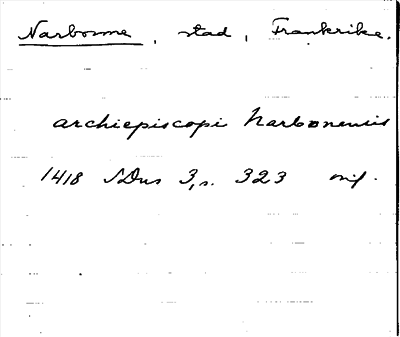 Narbonne, stad, Frankrike.
archiepiscopi Narbonensis
1418 SDns 3, s. 323 orig.